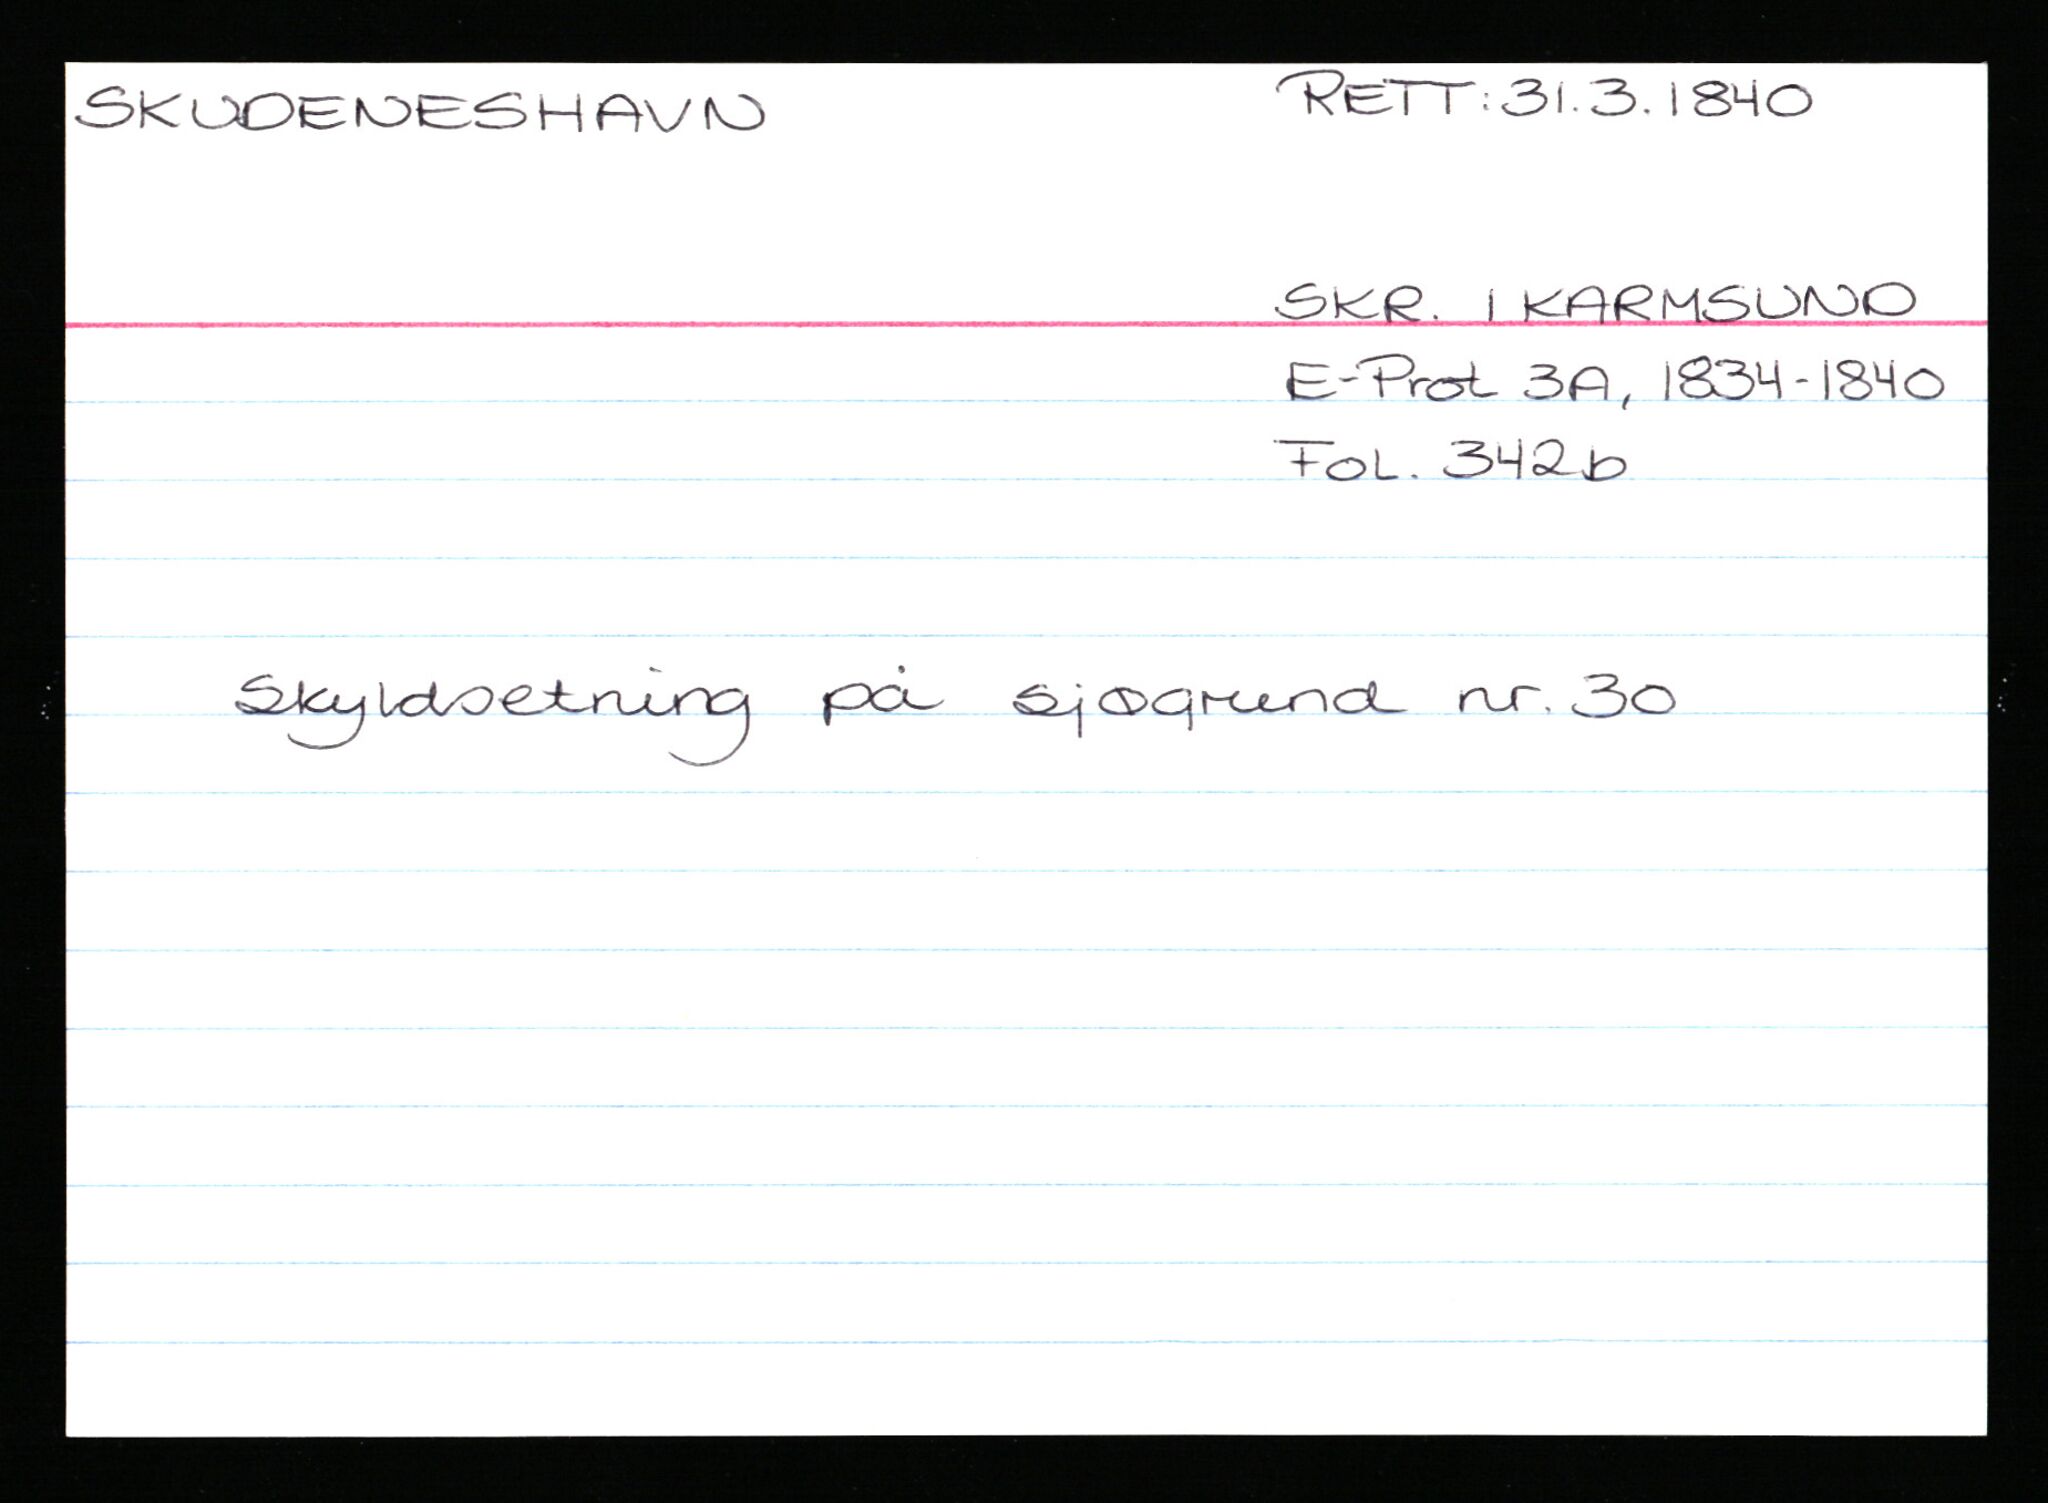 SKUDENESHAVN
RETT: 31.3.1840
SKR. I KARMSUND
E-Prot 3A, 1834-1840
FOL. 342b
Skyldsetning på sjøgrund nr. 30